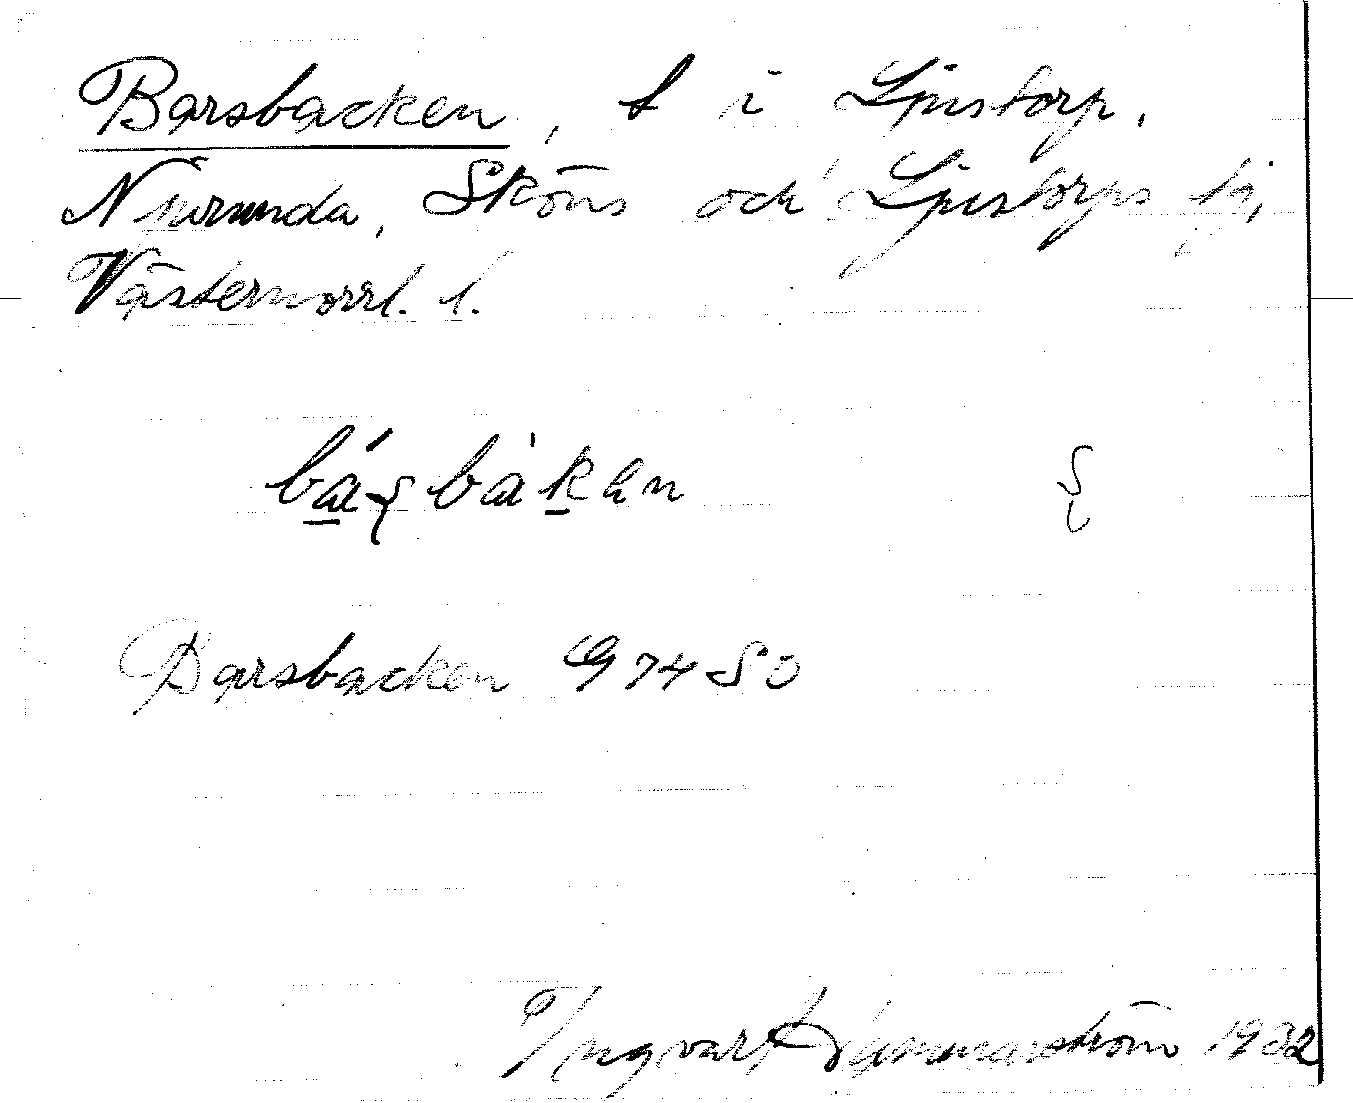 Barsbacken, t i Ljustorp,
Njurunda, Sköns och Ljustorps tg,
Västernorrl. l.
bás̨bàkan
ş
Barsbacken G 74 SO
Ingvar Hammarström 1932